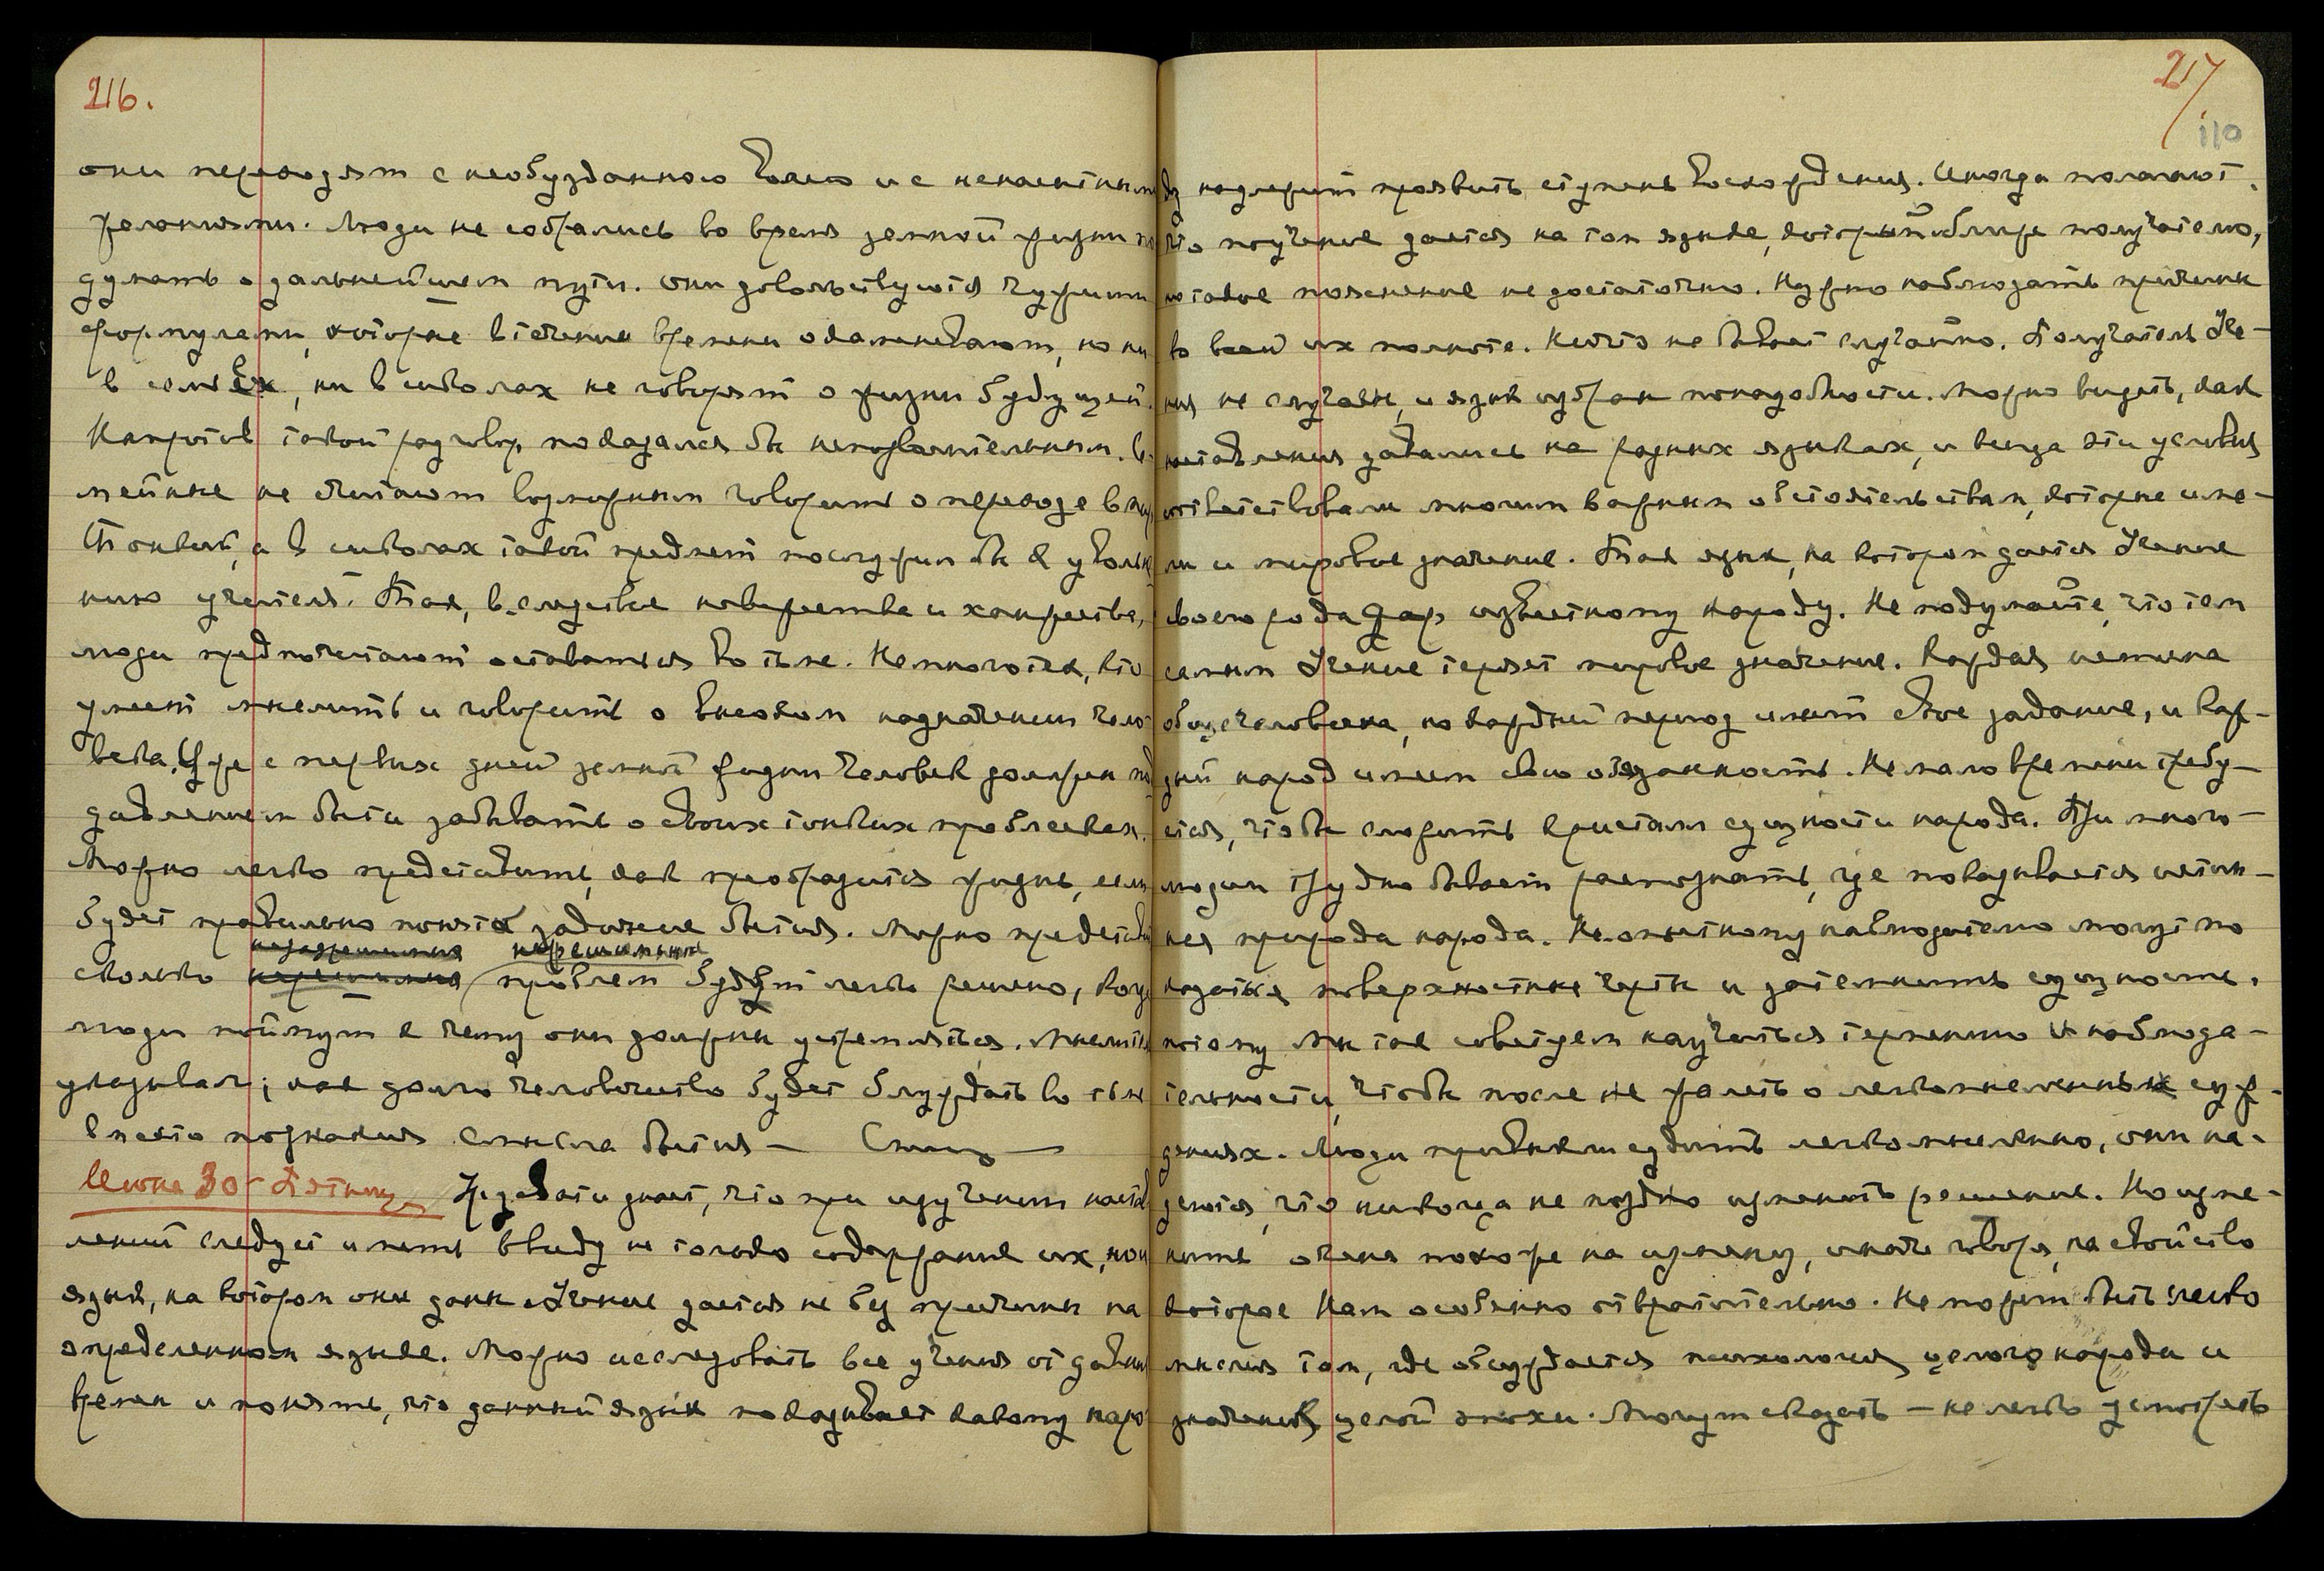 216.
они переходят с необузданною волею и с неосмысленными
желаниями. Люди не собрались во время земной жизни по
думать о дальнейшем пути. Они довольствуются чужими
формулами, которые в течение времени окаменевают, но ни
в семьях, ни в школах не говорят о жизни будущей.
Напротив такой разговор показался бы неподобающим. В се
мейные не считают возможным говорить о переходе в мир
Тонкий, а в школах такой предмет послужил бы к увольне
нию учителя. Так, вследствие невежества и ханжества,
люди предпочитают оставаться во тьме. Немного тех, кто
умеет мыслить и говорить о высоком назначении чело
века. Уже с первых дней земной жизни человек должен под
давлением быта забывать о своих тонких проблесках.
Можно легко представить, как преобразится жизнь, если
будет правильно понято задание бытия. Можно представить
неразрешимых нерешённых
сколько нерешимых проблем будут легко решено, когда
люди поймут к чему они должны устремиться. Мыслитель
указывал; как долго человечество будет блуждать во тьме
вместо познания смысла бытия —
Июня 30 - Пятница Урусвати знает, что при изучении настав
лений следует иметь ввиду не только содержание их, но и
язык, на котором они даны. Учение дается не без причины на
определенном языке. Можно исследовать все учения от давних
времен и понять, что данный язык показывает какому наро
217
110
ду надлежит проявить ступень восхождения. Иногда полагают,
что поучение дается на том языке, который ближе получателю,
но такое пояснение не достаточно. Нужно наблюдать причины
во всей их полноте. Ничто не бывает случайно. Получатель Уче-
ния не случаен, и язык избран по надобности. Можно видеть, как
наставления давались на разных языках, и всегда эти условия
соответствовали многим важным обстоятельствам, которые име-
ли и мировое значение. Так язык, на котором дается Учение
своего рода дар известному народу. Не подумайте, что тем
самым Учение теряет мировое значение. Каждая истина
общечеловечна, но каждый период имеет свое задание, и каж-
дый народ имеет свою обязанность. Немало времени требу-
ется, чтобы сложить кристалл сущности народа. При много-
людии трудно бывает распознать, где показывается истин-
ная природа народа. Неопытному наблюдателю могут по
казаться поверхностные черты и затемнить сущность,
потому Мы так советуем научиться терпению и наблюда-
тельности, чтобы после не жалеть о легкомысленных суж-
дениях. Люди привыкли судить легкомысленно, они на-
деются, что никогда не поздно изменить решение. Но изме-
нить очень похоже на измену, иначе говоря, на свойство
которое Нам особенно отвратительно. Не может быть легко
мыслия там, где обсуждается психология целого народа и
значение целой эпохи. Могут сказать — не легко усмотреть